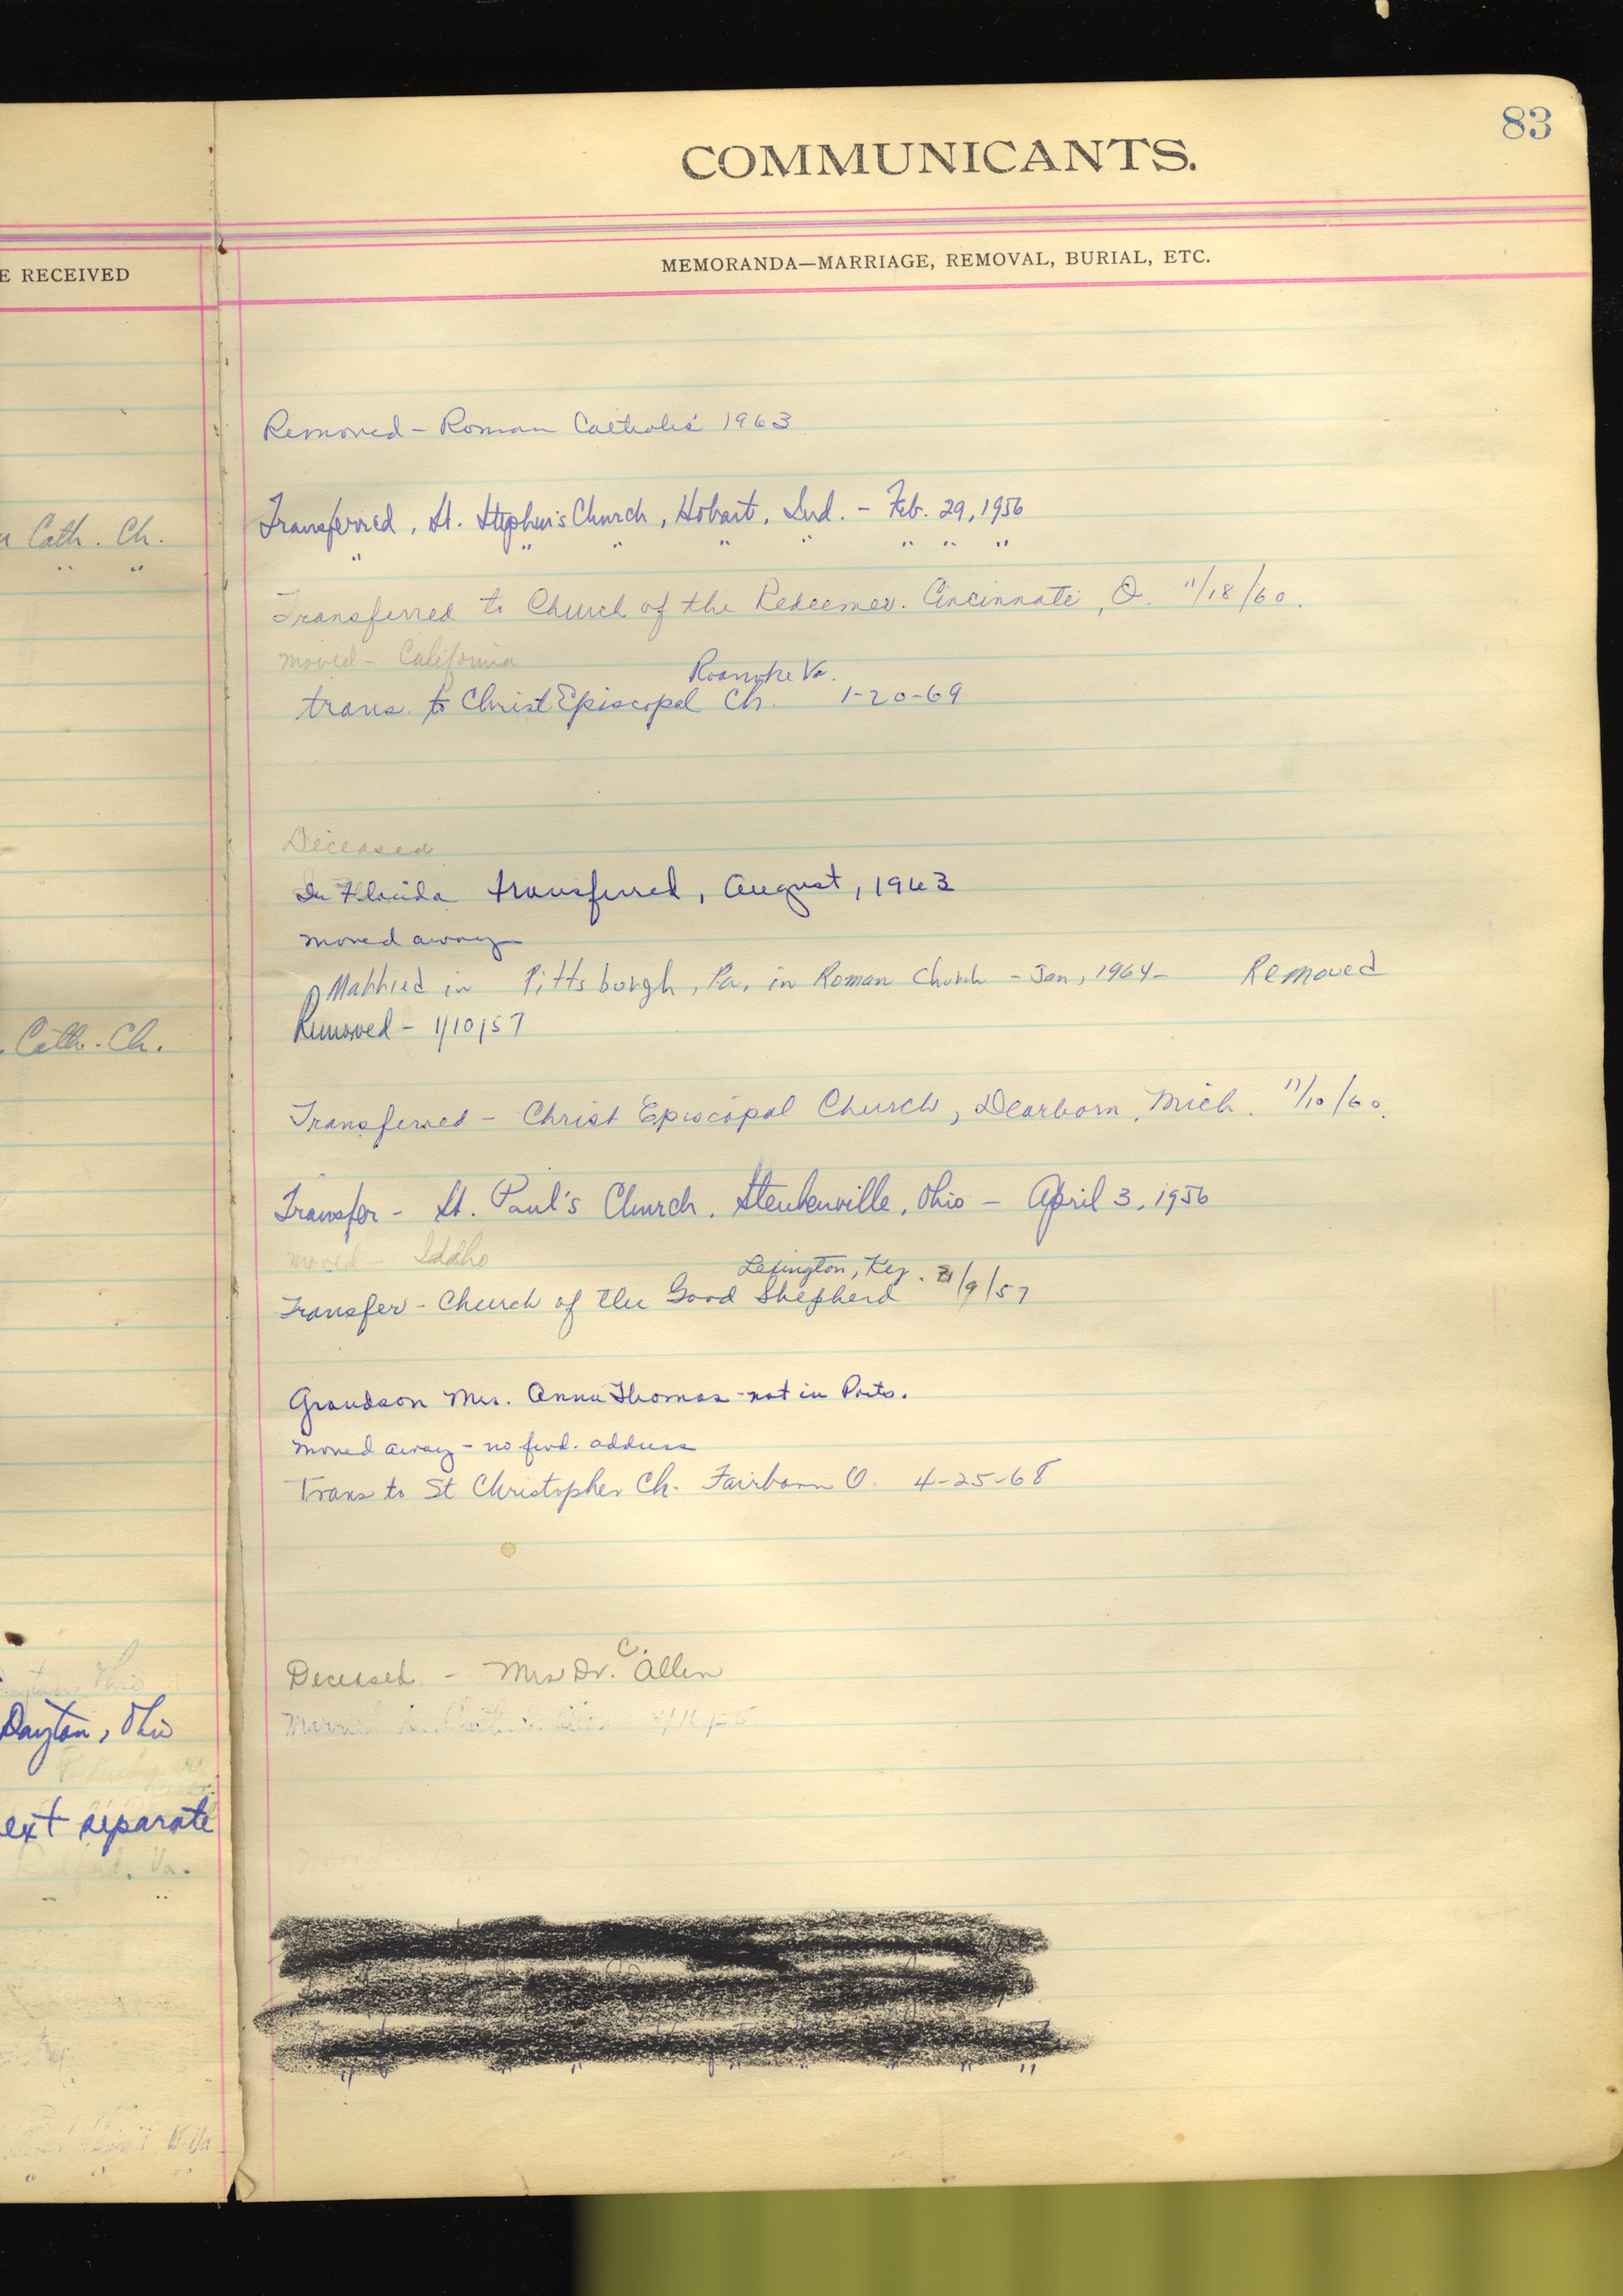 83
COMMUNICANTS.
E RECEIVED
MEMORANDA—MARRIAGE, REMOVAL, BURIAL, ETC.
Removed - Roman Catholic 1963
Transferred, St. Stephen's Church, Hobart, Ind. - Feb. 29, 1956
Cath. Ch.
" " " " " " " "
" "
Transferred to Church of the Redeemer. Cincinnati, O. 11/18/60.
moved - California
Roanoke Va.
trans. to Christ Episcopal Ch. 1-20-69
Deceased
In Florida transferred, August, 1963
moved away
Married in Pittsburgh, Pa, in Roman Church - Jan, 1964 - Removed
Removed - 1/10/57
Cath. Ch.
Transferred - Christ Episcopal Church, Dearborn, Mich. 11/10/60.
Transfer - St. Paul's Church, Steubenville, Ohio - April 3, 1956
moved - Idaho
Lexington, Ky. /9/57
Transfer - Church of the Good Shepherd
Grandson Mrs. Anna Thomas - not in Ports.
moved away - no fwd. address
Trans to St Christopher Ch. Fairborn O. 4-25-68
C.
Deceased - Mrs Dr. Allen
Ohio
Married
Dayton, Ohio
ext separate
Radford, Va.
" "
" " " " " " " "
W. Va
" " "